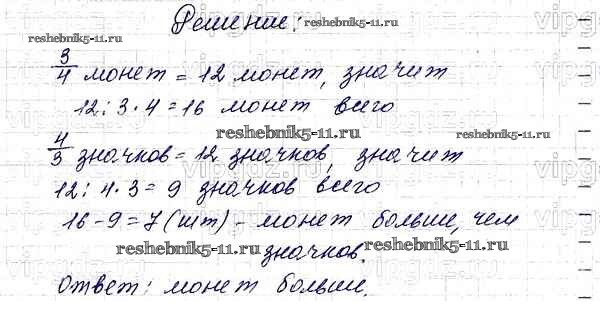 Решение:
reshebnik5-11.ru
3/4 монет = 12 монет, значит
12 : 3 · 4 = 16 монет всего
reshebnik5-11.ru
reshebnik5-11.ru
4/3 значков = 12 значков, значит
12 : 4 · 3 = 9 значков всего
16 - 9 = 7 (шт) - монет больше, чем
reshebnik5-11.ru
reshebnik5-11.ru
значков.
Ответ: монет больше.